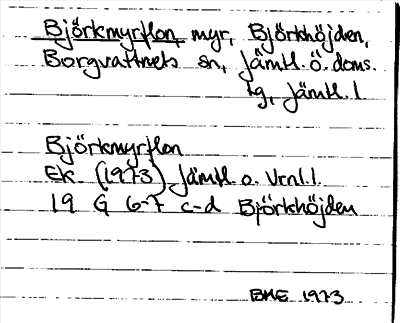 Björkmyrflon, myr, Björkhöjden,
Borgvattnets sn, Jämtl. ö. doms.
tg, Jämtl. l
Björkmyrflon
Ek. (1973) Jämtl. o. Vrnl. l.
19 G 6-7 c-d Björkhöjden
BME 1973